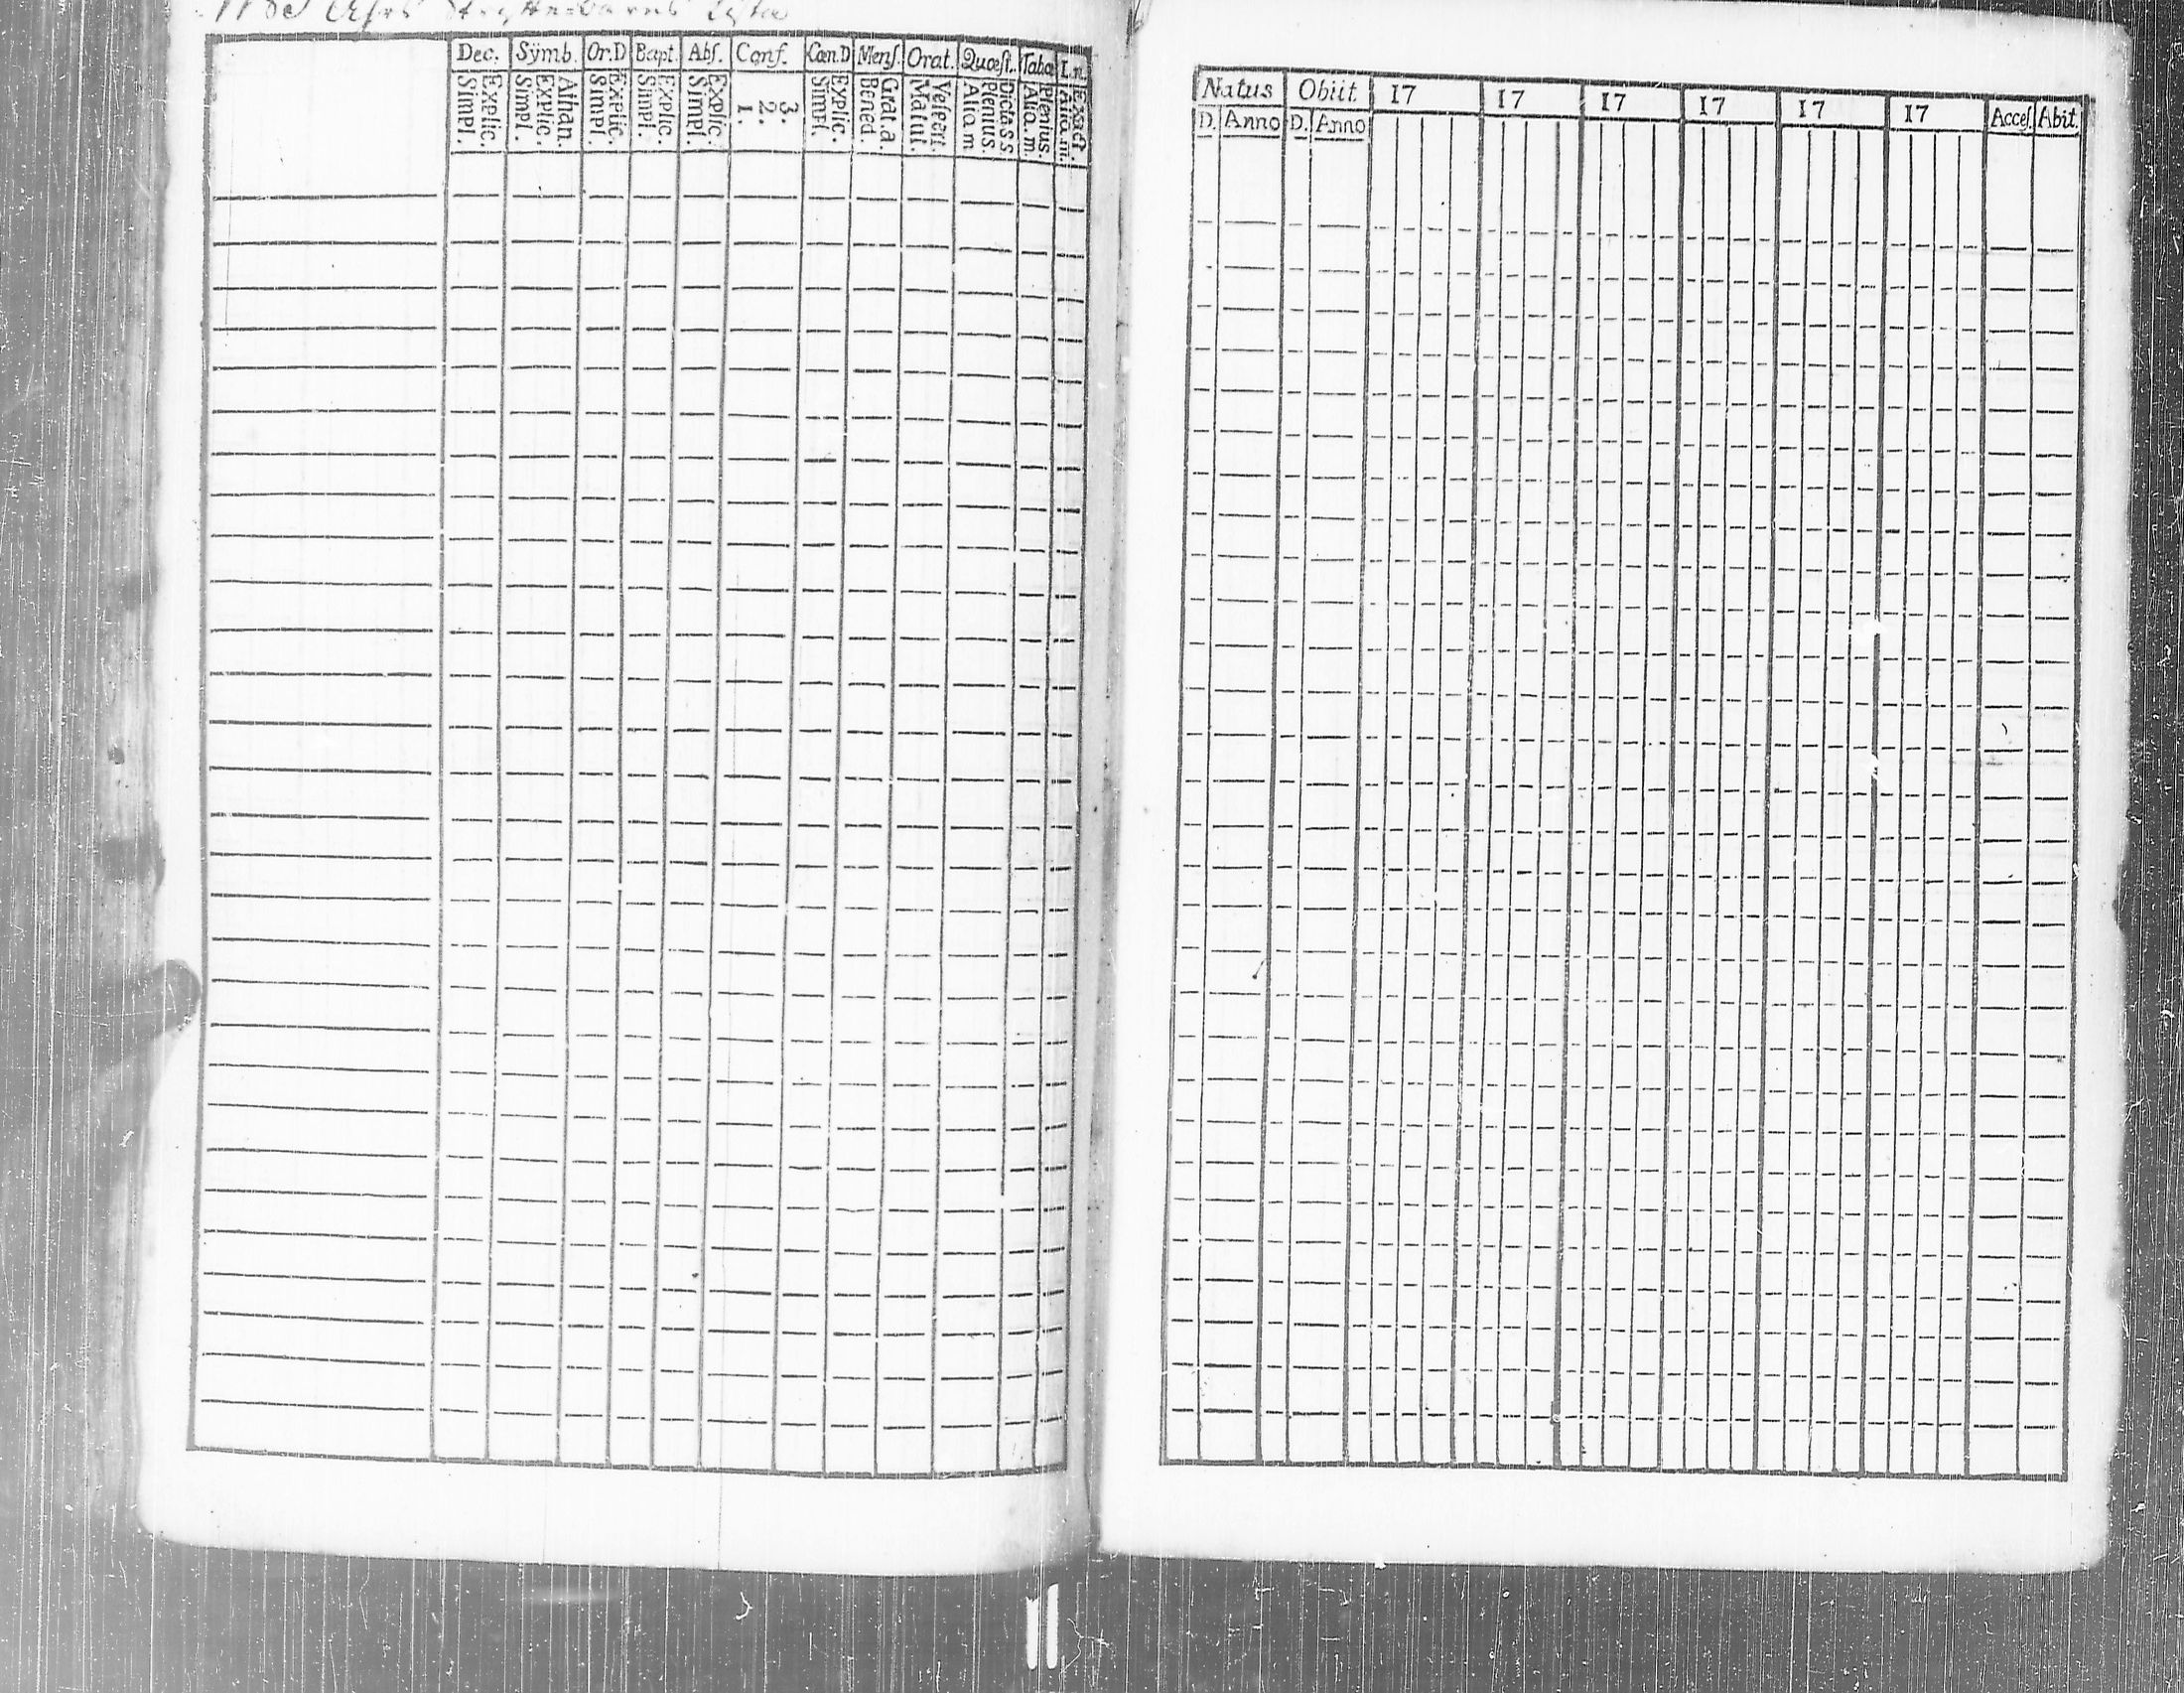 Dec. Sÿmb. Or.D Bapt. Abſ. Conf. Cœn.D Menſ. Orat. Quæſt. Taba I.n.
Simpl. Explic. Simpl. Explic. Athan. Simpl. Explic. Simpl. Explic. Simpl. Explic. 1. 2. 3. Simpl. Explic. Bened. Grat.a Matut. Veſpert. Alia.m Plenius. Dicta.S.S. Alia.m. Plenius. Alia.m. Exact.
Natus Obiit 17 17 17 17 17 17 Acceſ. Abit.
D. Anno D. Anno